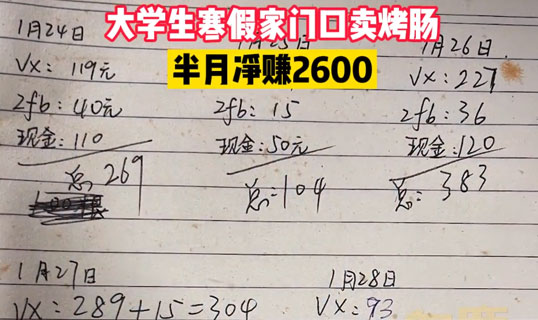 大学生寒假家门口卖烤肠
半月净赚2600
1月24日
VX：119元
Zfb：40元
现金：110
总 269
Zfb：15
现金：50元
总：104
1月26日
VX：227
Zfb：36
现金：120
总：383
1月27日
VX：289+15=304
1月28日
VX：93